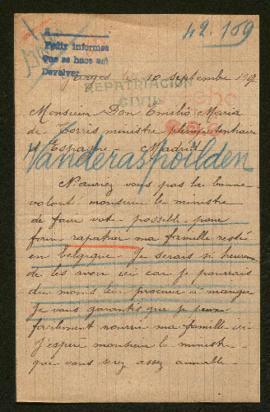 42.109
A
Pedir informes
que se hace así
Devolver
10 Septembre 191
REPATRIACION
CIVIL
Monsieur Don Emilio Maria
de Torris ministre plénipotentiaire
d'Espagne Madrid
Vanderaspoilden
N'auriez vous pas la bonne
volont monsieur le ministre
de faire votr possible pour
faire rapatrier ma famille resté
en belgique. Je serais si heureu
de les avoir ici car je pourrais
du moins leur procurer à manger
Je vous garantis que je peux
facilement nourrir ma famille ici
J'esper monsieur le ministre
que vous serez assez aimable